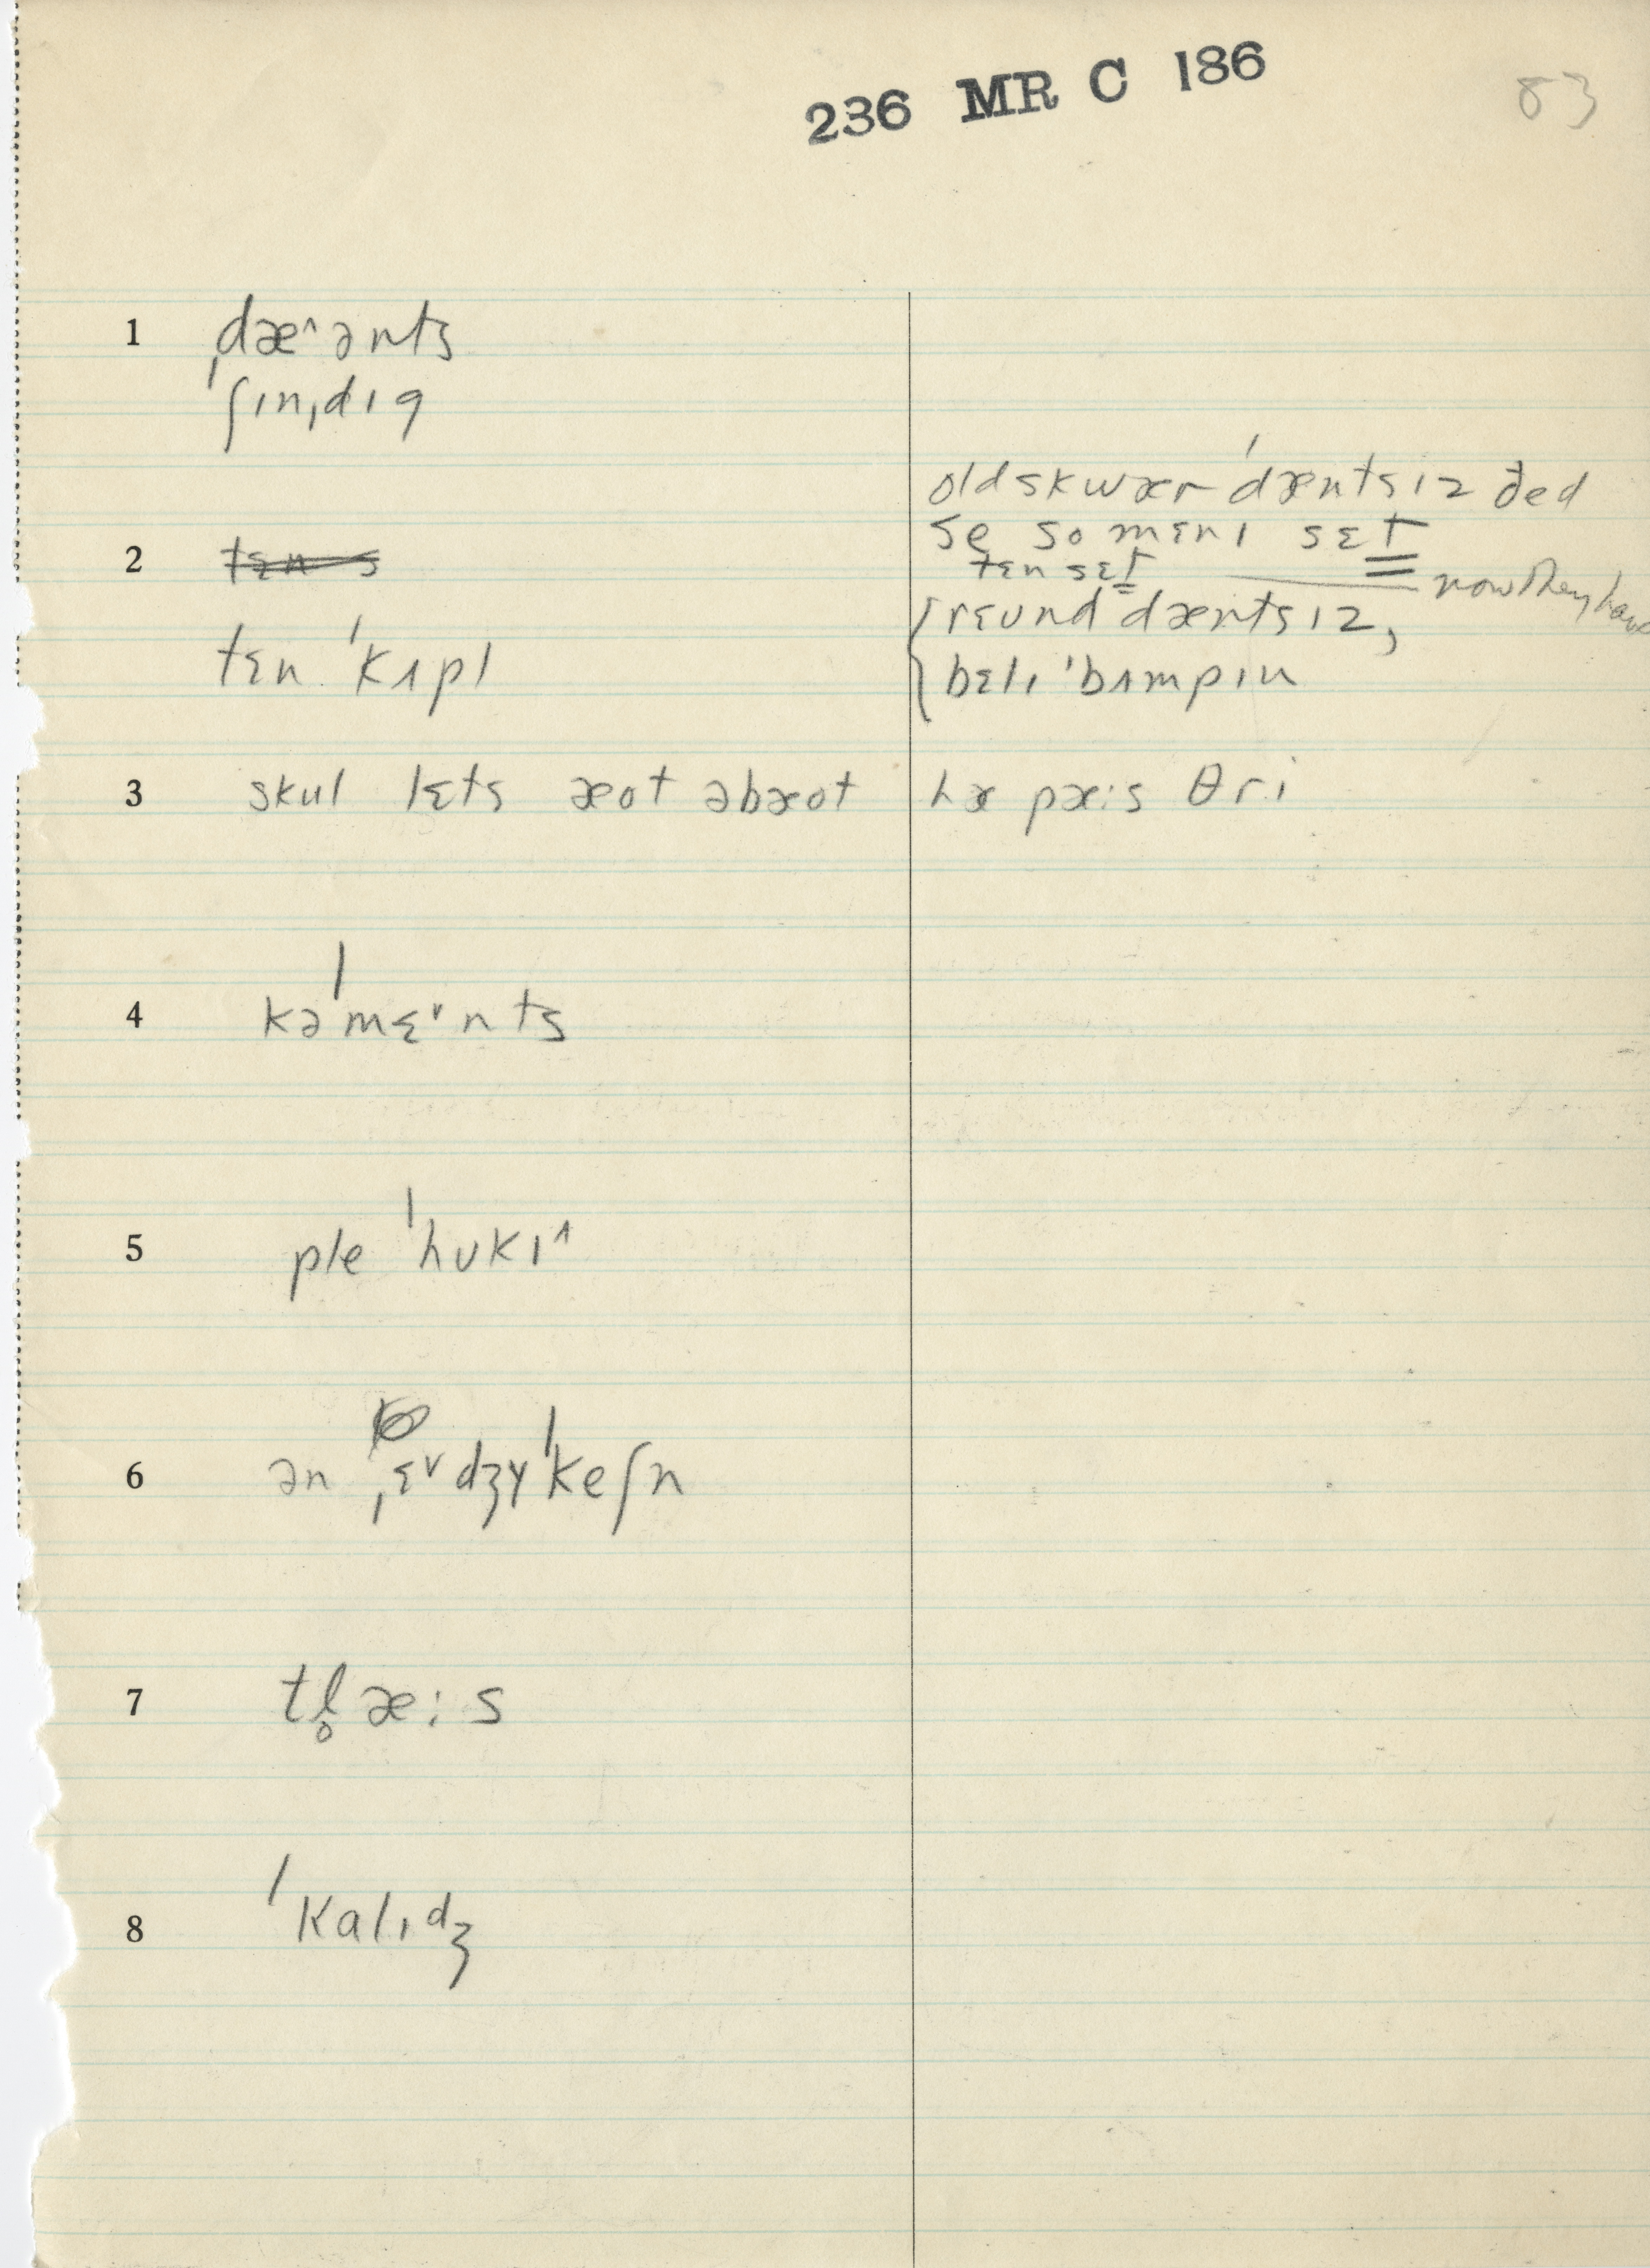 236 MR C 186
83
1 dæ˄ənts
ˈʃɪnˌdɪg
old skwær ˈdæntsɪz ðed
se so mɛnɪ sɛt
2 tɛn s
tɛn sɛt now they have
rɛund dæntsɪz,
tɛn ˈkʌpl
bɛlɪ ˈbʌmpɪn
3 skul lɛts æot əbæot hæ pæ:s θri
4 kəˈmɛ˅nts
5 ple ˈhʊkɪ˄
6 ən ˌɛ˅dʒyˈkeʃn
7 tl̥æ:s
8 ˈkalɪdʒ